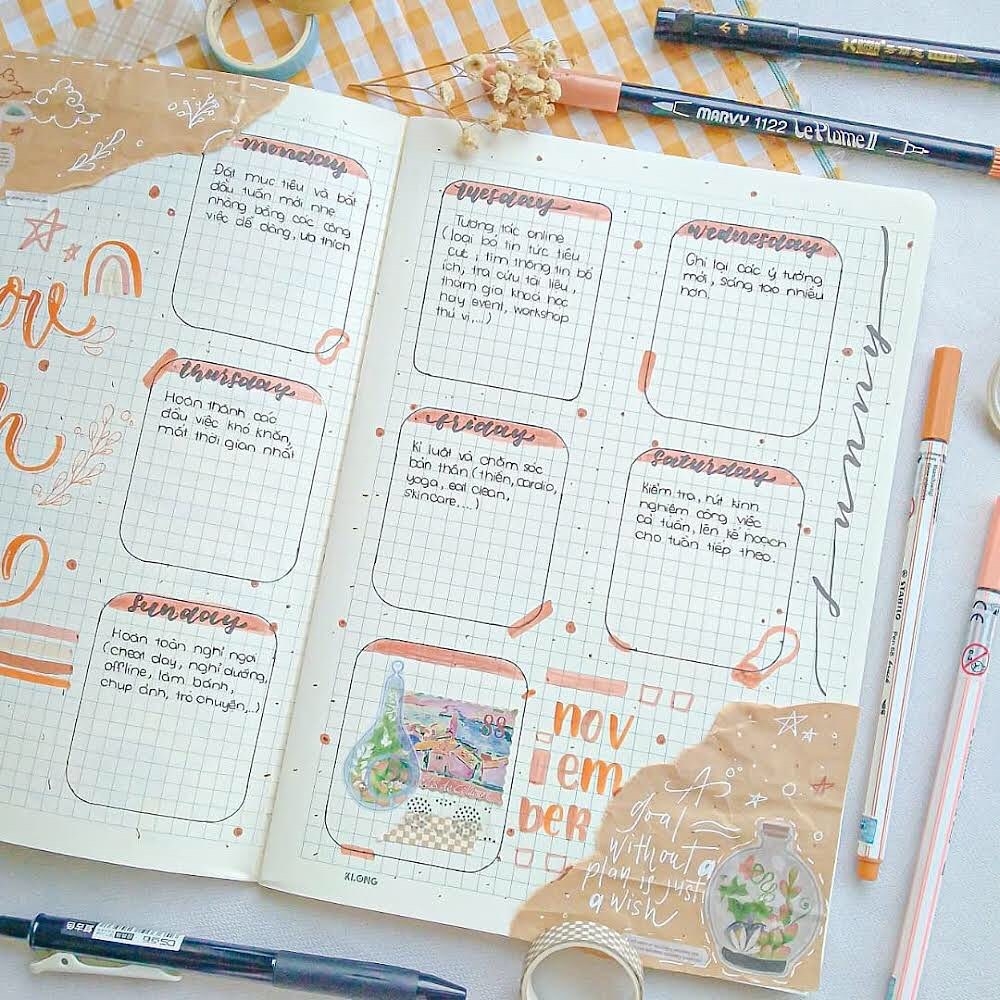 monday
Đặt mục tiêu và bắt
đầu tuần mới nhẹ
nhàng bằng các công
việc dễ dàng, ưa thích
thursday
Hoàn thành các
đầu việc khó khăn,
mất thời gian nhất
sunday
Hoàn toàn nghỉ ngơi
(cheat day, nghỉ dưỡng,
offline, làm bánh,
chụp ảnh, trò chuyện,..)
tuesday
Tương tác online
(loại bỏ tin tức tiêu
cực, tìm thông tin bổ
ích, tra cứu tài liệu,
tham gia khoá học
hay event, workshop
thú vị,...)
wednesday
Ghi lại các ý tưởng
mới, sáng tạo nhiều
hơn.
friday
Kỉ luật và chăm sóc
bản thân (thiền, cardio,
yoga, eat clean,
skincare,...)
saturday
Kiểm tra, rút kinh
nghiệm công việc
cả tuần, lên kế hoạch
cho tuần tiếp theo.
sunny
88
nov
em
ber
A
goal
without a
plan is just
a wish
KLONG
MARVY 1122 Le Plume II
STABILO Pen 68
CE